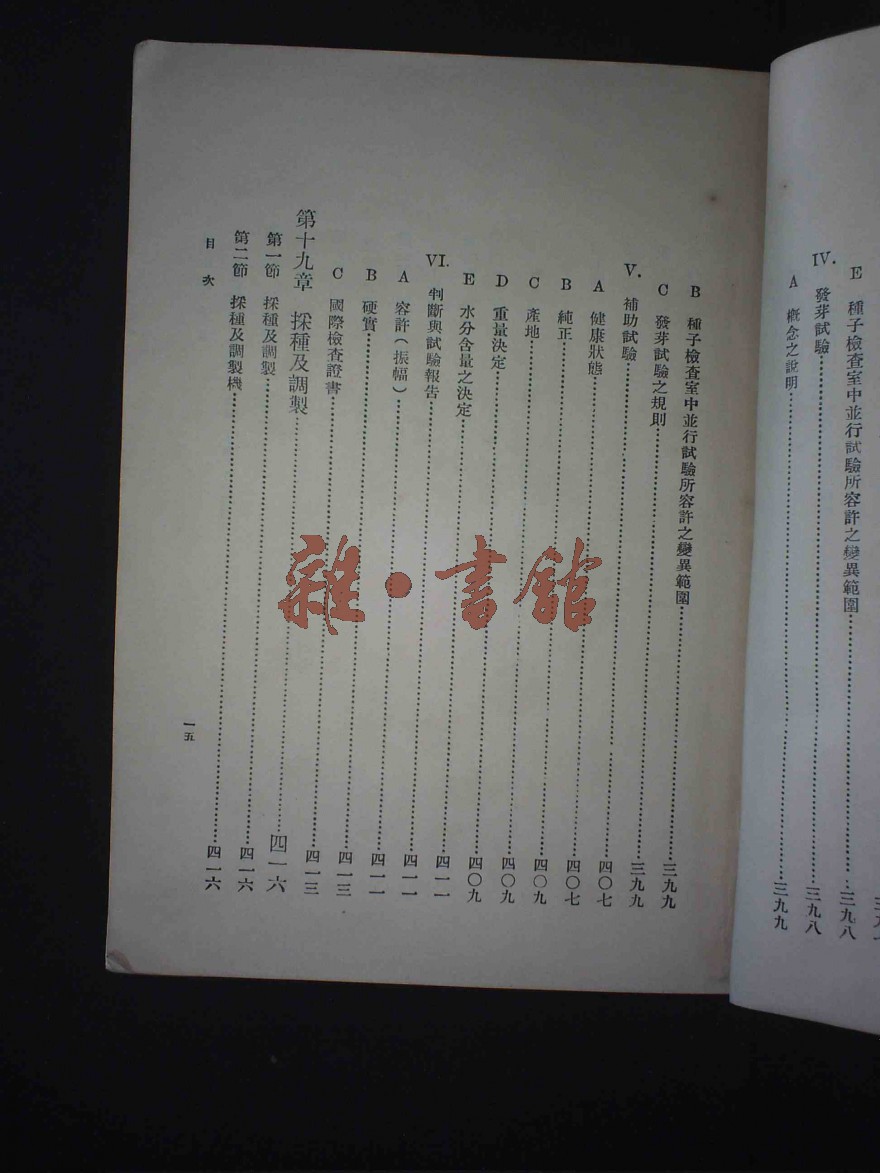 E 種子檢查室中並行試驗所容許之變異範圍……三九八
IV. 發芽試驗……三九八
A 概念之說明……三九九
B 種子檢查室中並行試驗所容許之變異範圍……三九九
C 發芽試驗之規則……三九九
V. 補助試驗……四〇七
A 健康狀態……四〇七
B 純正……四〇九
C 產地……四〇九
D 重量決定……四〇九
E 水分含量之決定……四一一
VI. 判斷與試驗報告……四一一
A 容許(振幅)……四一一
B 硬實……四一三
C 國際檢查證書……四一三
第十九章 採種及調製……四一六
第一節 採種及調製……四一六
第二節 採種及調製機……四一六
目次
一五
雜·書館